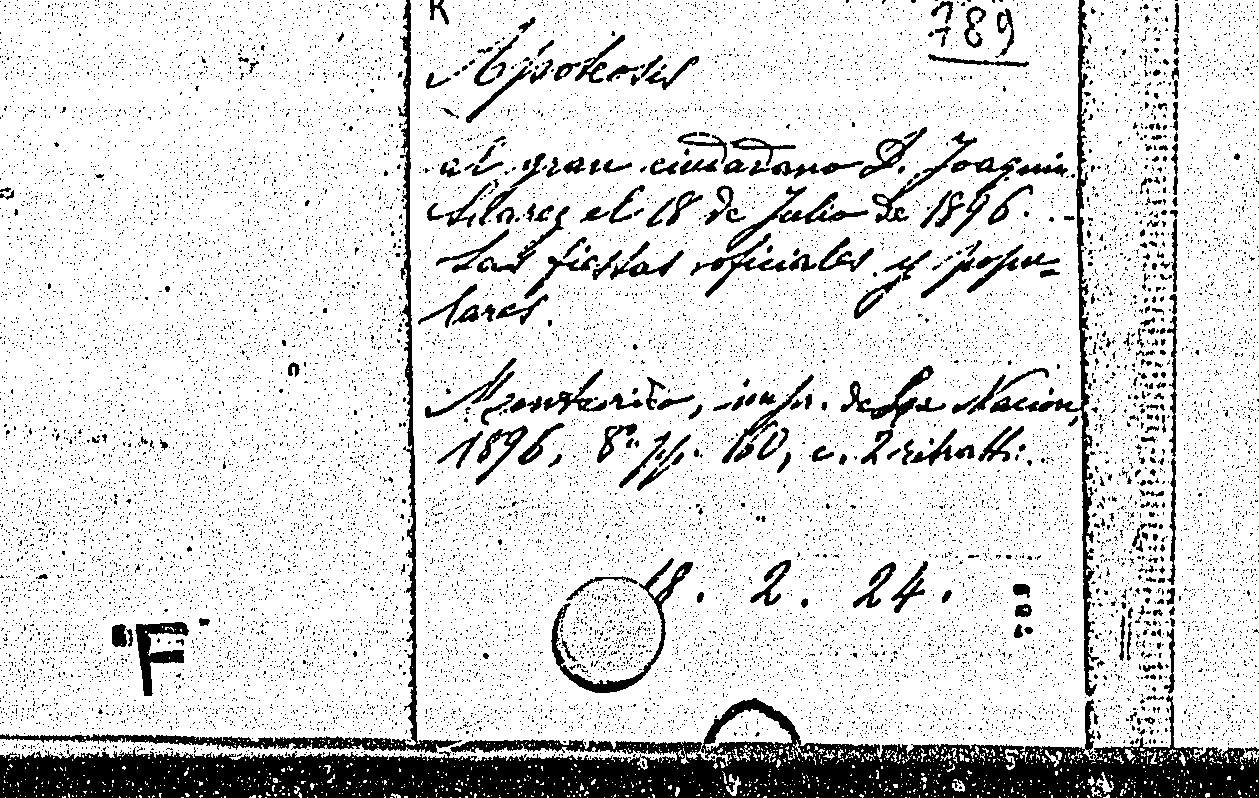 K
789
Apoteosis
al gran ciudadano D. Joaquin
Suarez el 18 de Julio de 1896. ..-
Las fiestas oficiales y popu-
lares.
Montevideo, impr. de La Nacion,
1896, 8º pp. 160, c. 2 ritratti.
18. 2. 24.
789
"F"